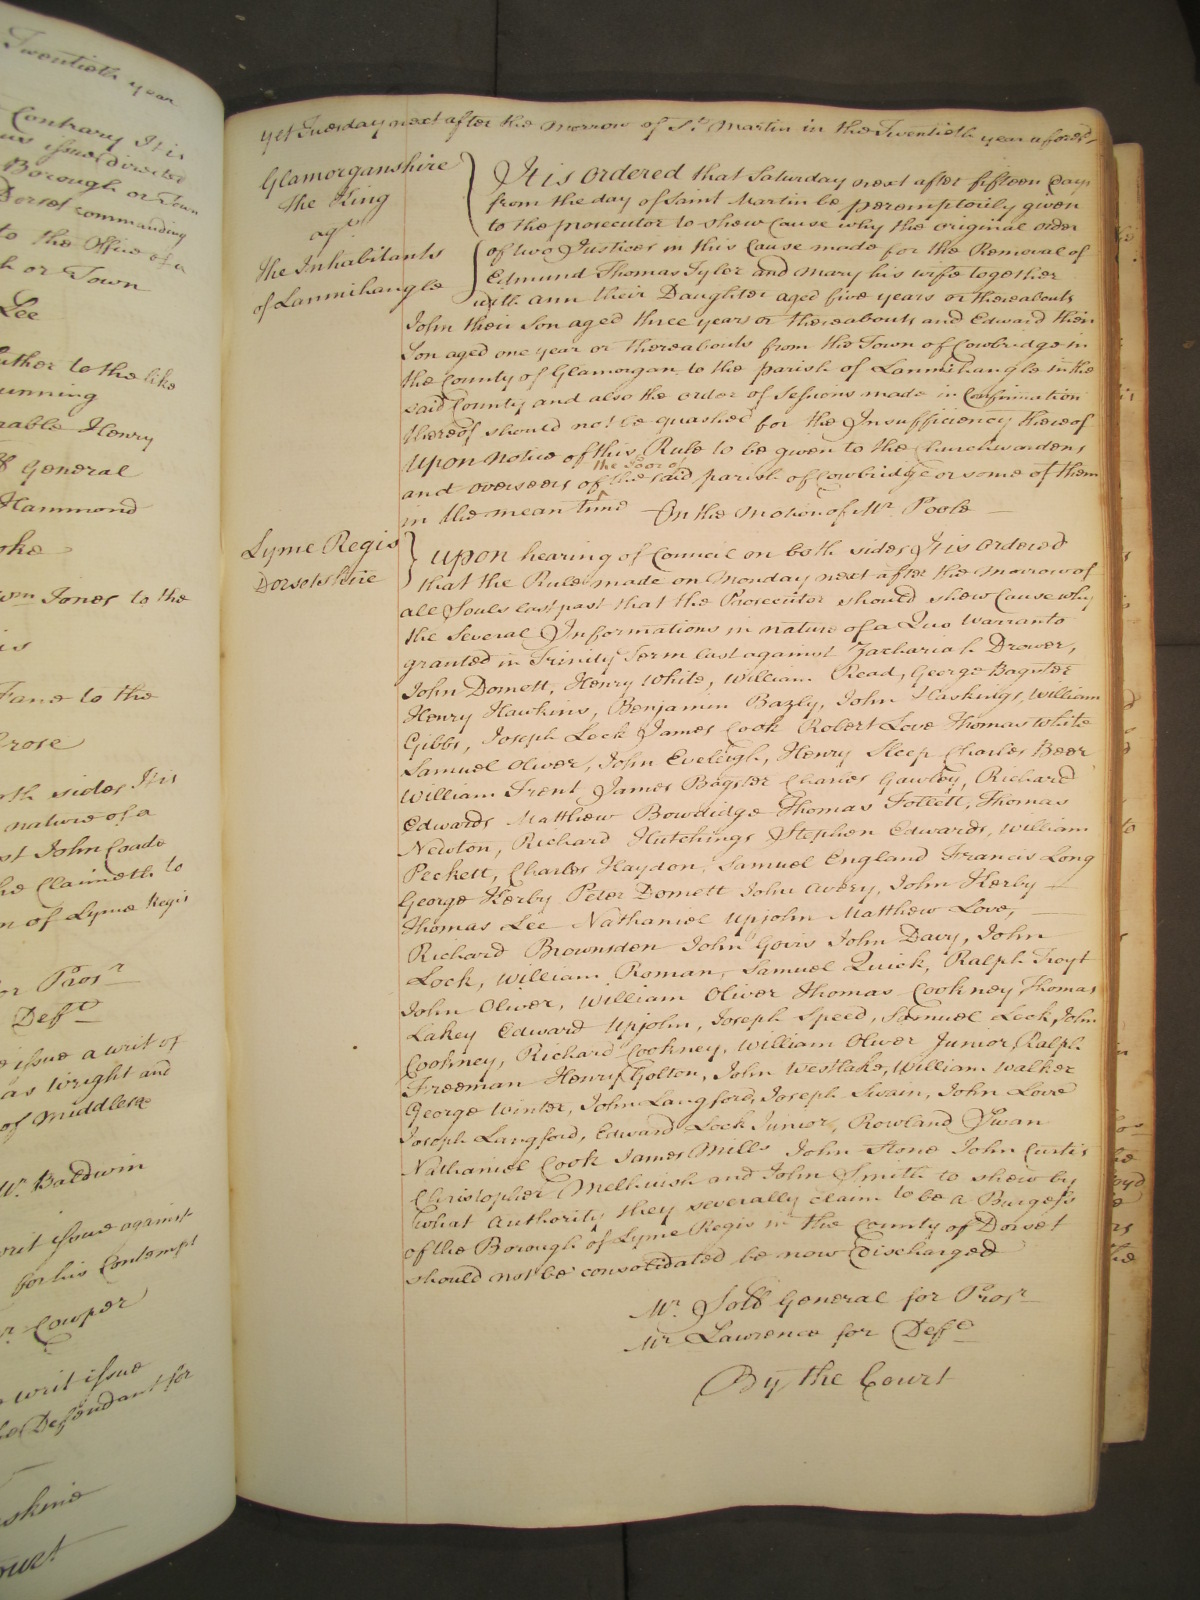 Twentieth year
Contrary It is
issue directed
Borough or Town
Dorset commanding
to the Office of a
h or Town
Lee
further to the like
unning
rable Henry
General
Hammond
oke
Jones to the
is
Fane to the
Prose
oth sides It is
nature of a
st John Coade
he Claimeth to
n of Lyme Regis
or Prosr
Defte
issue a writ of
as Wright and
of Middlesex
Mr. Baldwin
writ issue against
for his Contempt
r. Cowper
writ issue
Defendant for
Court
yet Tuesday next after the Morrow of St. Martin in the Twentieth year aforesd.
Glamorganshire
the King
agt
the Inhabitants
of Lanmihangle
It is Ordered that Saturday next after fifteen Days
from the day of Saint Martin be peremptorily given
to the prosecutor to shew Cause why the original order
of two Justices in this Cause made for the Removal of
Edmund Thomas Tylor and Mary his wife together
with ann their Daughter aged five years or thereabouts
John their Son aged three years or thereabouts and Edward their
Son aged one year or thereabouts from the Town of Cowbridge in
the County of Glamorgan to the parish of Lanmihangle in the
said County and also the order of Sessions made in Confirmation
thereof should not be quashed for the Insufficiency thereof
Upon notice of this Rule to be given to the Churchwardens
and overseers of the Poor of the said parish of Cowbridge or some of them
in the mean time On the Motion of Mr. Poole
Lyme Regis
Dorsetshire
Upon hearing of Council on both sides It is Ordered
that the Rule made on Monday next after the Morrow of
all Souls last past that the Prosecutor should shew Cause why
the Several Informations in nature of a Quo Warranto
granted in Trinity Term last against Zachariah Drower,
John Domett, Henry White, William Read, George Bagster
Henry Hawkins, Benjamin Bazly, John Haskings, William
Gibbs, Joseph Lock James Cook Robert Love Thomas White
Samuel Oliver, John Eveleigh, Henry Sleep Charles Beer
William Trent James Bagster Charles Gawley, Richard
Edwards Matthew Bowdidge Thomas Follett, Thomas
Newton, Richard Hutchings Stephen Edwards, William
Peckett, Charles Haydon, Samuel England Francis Long
George Kerby Peter Domett John Avbey, John Kerby
Thomas Lee Nathaniel Upjohn Matthew Love,
Richard Brownsden John Govis John Davy, John
Lock, William Roman, Samuel Quick, Ralph Troyt
John Oliver, William Oliver Thomas Cookney, Thomas
Lakey Edward Upjohn, Joseph Speed, Samuel Lock, John
Cookney, Richard Cookney, William Oliver Junior, Ralph
Freeman Henry Golton, John Westlake, William Walker
George Winter, John Langford, Joseph Swain, John Love
Joseph Langford, Edward Lock Junior, Rowland Swan
Nathaniel Cook James Mills John Stone John Curtis
Christopher Melhuish and John Smith to shew by
what authority they severally claim to be a Burgess
of the Borough of Lyme Regis in the County of Dorset
should not be consolidated be now Discharged
Mr. Sollr General for Prosr
Mr Lawrence for Defte
By the Court